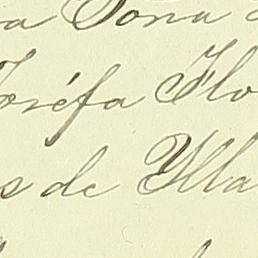 a Dona
Joséfa Flo
s de Villa